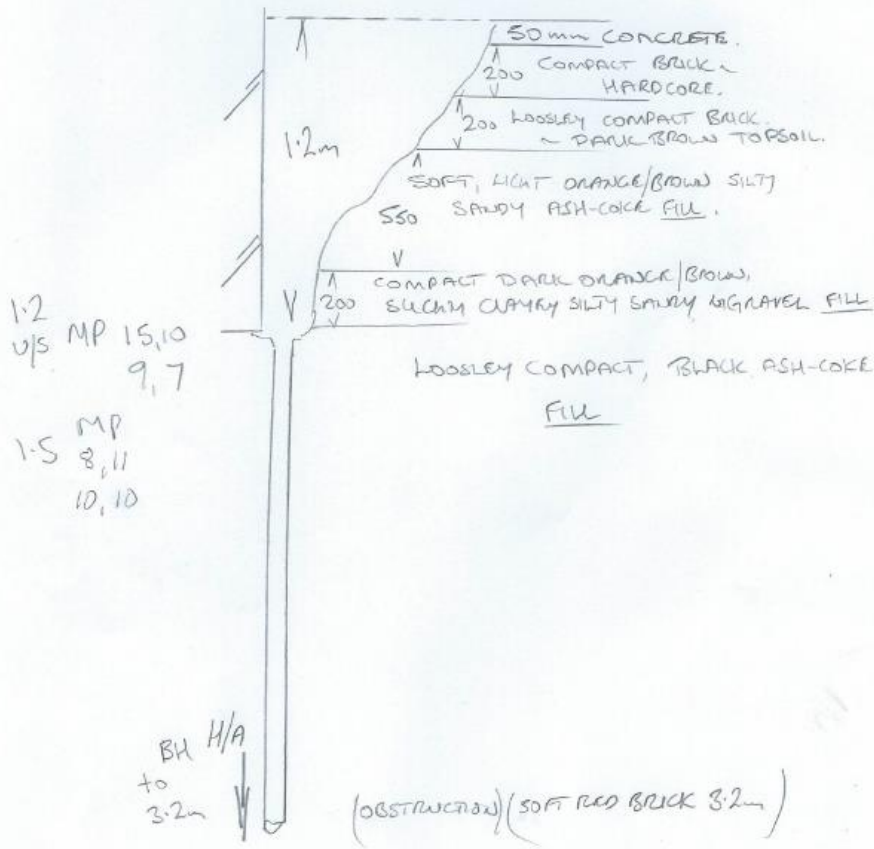 50mm CONCRETE.
200 COMPACT BRICK ~
HARDCORE.
200 LOOSLEY COMPACT BRICK.
~ DARK BROWN TOPSOIL.
1.2m
SOFT, LIGHT ORANGE/BROWN SILTY
550 SANDY ASH-COKE FILL.
COMPACT DARK ORANGE/BROWN,
200 CLAYEY SILTY SANDY GRAVEL FILL
1.2
U/S MP 15,10
9,7
LOOSLEY COMPACT, BLACK ASH-COKE
FILL
1.5 MP
8,11
10,10
BH H/A
to
3.2m
(OBSTRUCTION) (SOFT RED BRICK 3.2m)